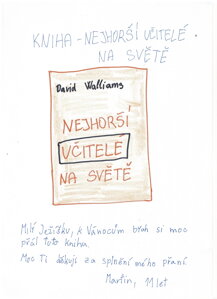 KNIHA - NEJHORŠÍ UČITELÉ
NA SVĚTĚ
David Walliams
NEJHORŠÍ
UČITELÉ
NA SVĚTĚ
Milý Ježíšku, k Vánocům bych si moc
přál tuto knihu.
Moc Ti děkuji za splnění mého přání.
Martin, 11 let